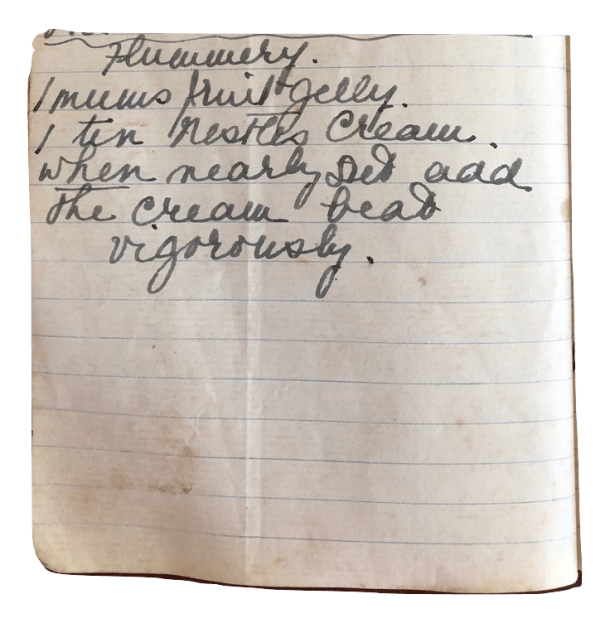 Flummery.
1 mums fruit jelly.
1 tin Nestles Cream.
when nearly set add
the cream beat
vigorously.